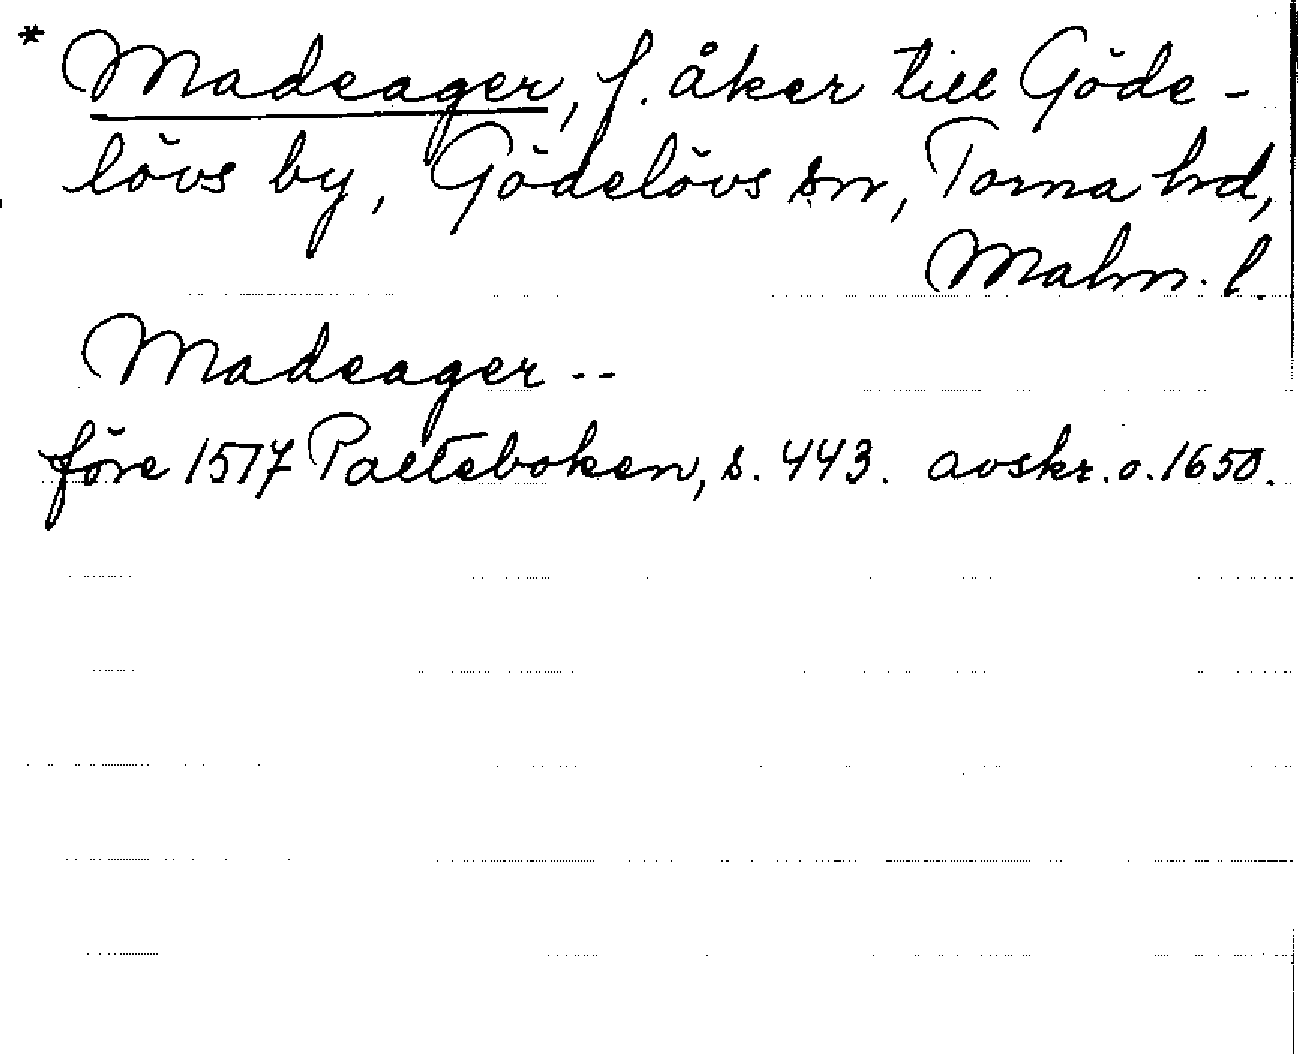 * Madeager, f. åker till Göde-
lövs by, Gödelövs sn, Torna hd,
Malm. l.
Madeager --
före 1517 Palteboken, s. 443. avskr. o. 1650.